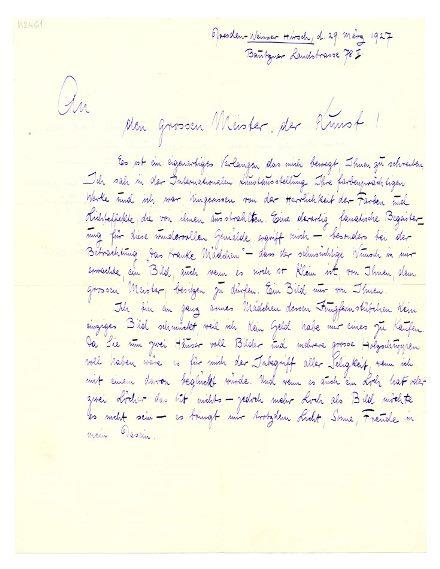 K2461
Dresden-Weisser Hirsch, d. 29 März 1927
Bautzner Landstrasse 78 I
An
den grossen Meister der Kunst!
Es ist ein eigenartiges Verlangen das mich bewegt Ihnen zu schreiben
Ich sah in der Internationalen Kunstausstellung Ihre farbenprächtigen
Werke und ich war von der Herrlichkeit der Farben und
Lichteffekte die von ihnen ausstrahlten Eine derartig fanatische Begeister-
ung für diese wundervollen Gemälde ergriff mich – besonders bei der
Betrachtung "das kranke Mädchen" – dass der sehnsüchtige Wunsch in mir
erwachte ein Bild, auch wenn es noch so klein ist von Ihnen dem
grossen Meister, besitzen zu dürfen. Ein Bild nur von Ihnen.
Ich bin ein ganz armes Mädchen dessen Jungfernstübchen kein
einziges Bild schmückt weil ich kein Geld habe mir eines zu kaufen.
Da Sie nun zwei Häuser voll Bilder und mehrere grosse Holzschuppen
voll haben wäre es für mich der Inbegriff aller Seligkeit, wenn ich
mit einem davon beglückt würde. Und wenn es auch ein Loch hat oder
zwei Löcher das tut nichts – jedoch mehr Loch als Bild möchte
es nicht sein – es bringt mir trotzdem Licht, Sonne, Freude in
mein Dasein.